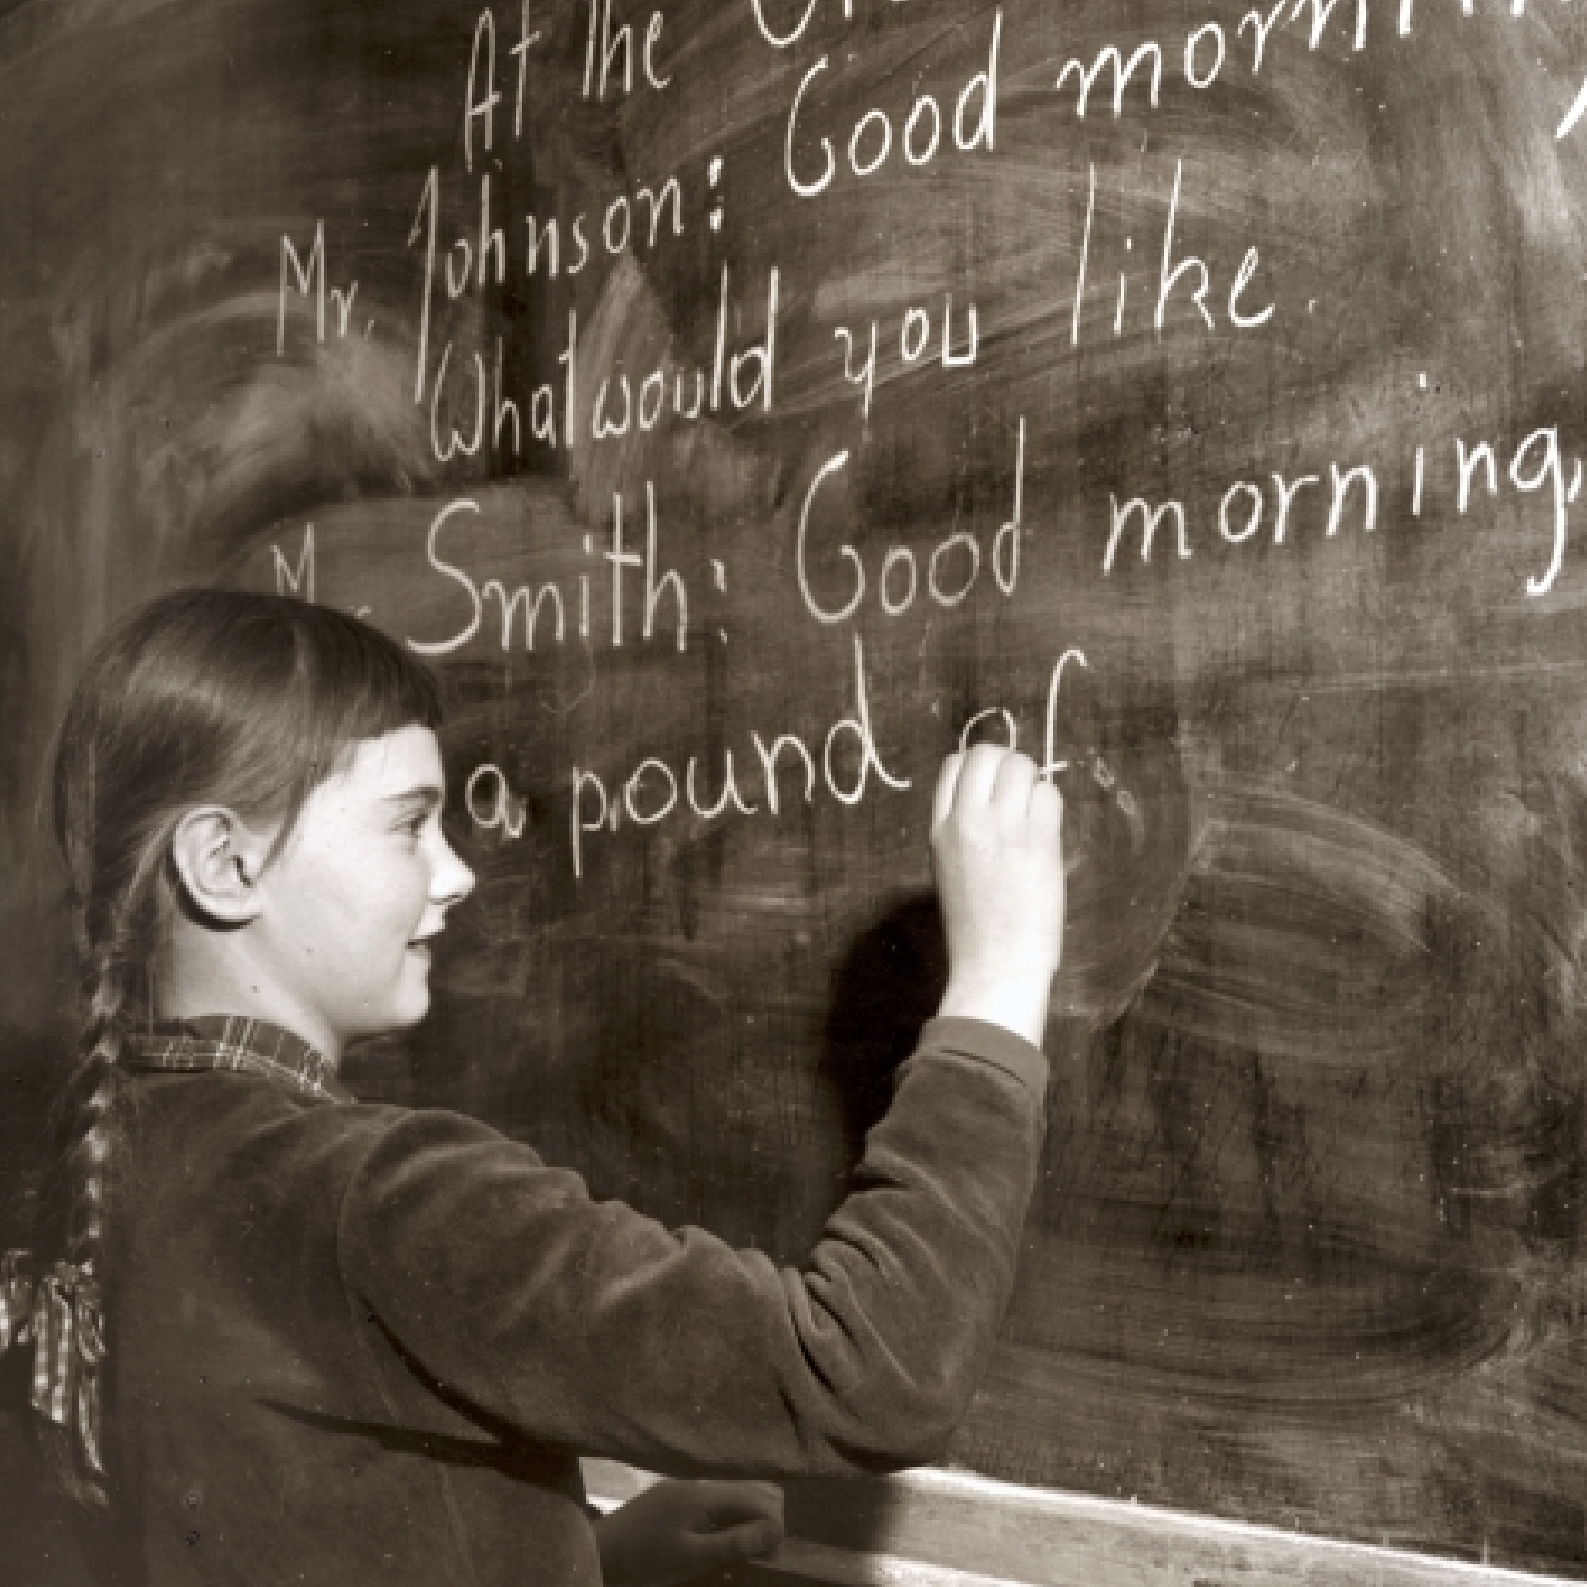 At the
Mr. Johnson: Good morning
What would you like.
Smith: Good morning,
a pound of